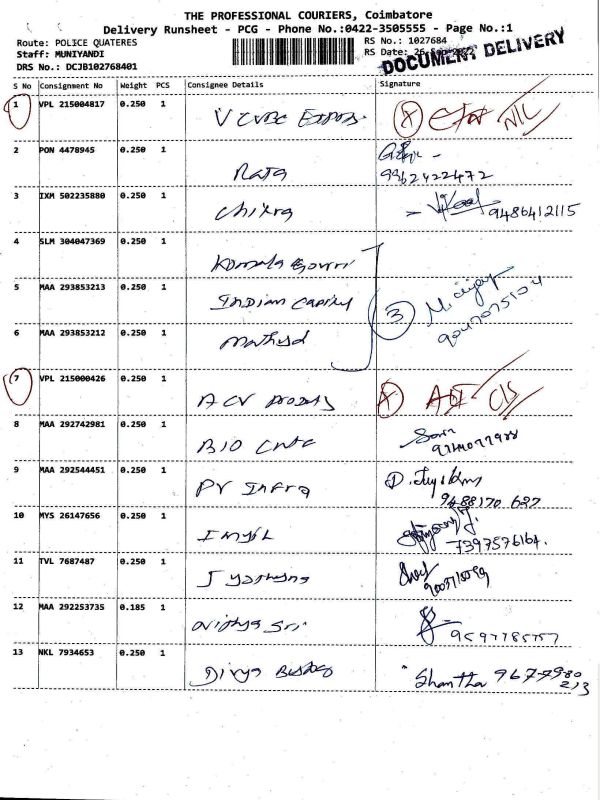 THE PROFESSIONAL COURIERS, Coimbatore
Delivery Runsheet - PCG - Phone No.:0422-3505555 - Page No.:1
Route: POLICE QUATERES RS No.: 1027684
Staff: MUNIYANDI RS Date: 26-Sep-2022
DRS No.: DCJB102768401
DOCUMENT DELIVERY
S No Consignment No Weight PCS Consignee Details Signature
1 VPL 215004817 0.250 1 X NIL
2 PON 4478945 0.250 1 Raja
9962422472
3 IXM 502235880 0.250 1 Chitra 9486412115
4 SLM 304047369 0.250 1 Komala Gowri
5 MAA 293853213 0.250 1 Indian Capital 3
6 MAA 293853212 0.250 1
7 VPL 215000426 0.250 1 ACV X
8 MAA 292742981 0.250 1 BIO
9 MAA 292544451 0.250 1 PV Infra
9488170 627
10 MYS 26147656 0.250 1
7397576164.
11 TVL 7687487 0.250 1
12 MAA 292253735 0.185 1 Vidhya Sri
13 NKL 7934653 0.250 1 Divya Shantha 967-7980
213